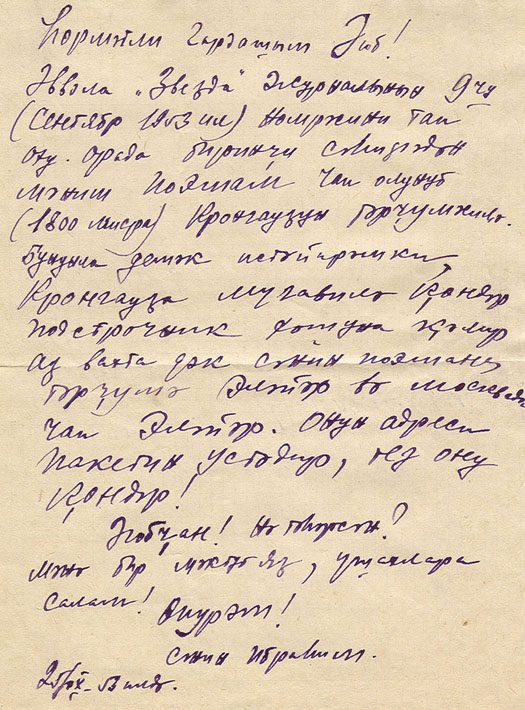 Һөрмәтли гардашым Әјјуб!
Әввәла „Звезда" журналынын 9чу
(Сентябр 1953 ил) нөмрәсини тап
оху. Орада биринчи сәһифәдән
мәним поэмам чап олунуб
(1800 мисра) Кронгаузун тәрҹүмәсиндә.
Бунунла демәк истәјирәмки,
Кронгауза мугавилә ҝөндәр
подстрочник хошуна ҝәлир
аз вахта дәк сәнин поэманы
тәрҹүмә эләтдир вә Москвада
чап эләтдир. Онун адреси
пакетин үстәдир, тез ону
ҝөндәр!
Әјјубҹан! Нә тәһәрсән?
Мәнә бир мәктуб яз, ушаглара
салам! Өпүрәм!
сәнин Ибраһим.